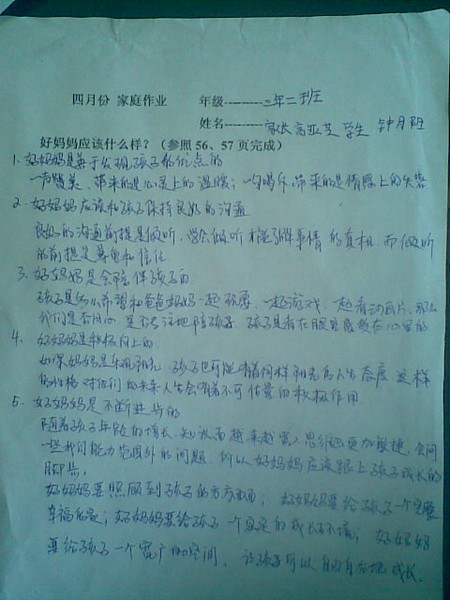 四月份 家庭作业 年级--------二年二班
姓名--------家长 高亚芝 学生 钟月
好妈妈应该什么样？（参照 56、57 页完成）
1. 好妈妈是善于发现孩子优点的
一句赞美，带来的是心灵上的温暖；一句喝斥，带来的是情感上的失落
2. 好妈妈应该和孩子保持良好的沟通
良好的沟通前提是倾听，学会倾听才能了解事情的真相，而倾听
的前提是尊重和信任
3. 好妈妈是会陪伴孩子的
孩子是多么希望和爸爸妈妈一起，一起游戏，一起看动画片，那么
我们是否用心，是否专注地陪孩子，孩子是看在眼里感受在心里的
4. 好妈妈是积极向上的
如果妈妈是乐观的，孩子也可能有着同样的人生态度，这样
的性格对他们的未来人生会有着不可估量的积极作用
5. 好妈妈是不断进步的
随着孩子年龄的增长，知识面越来越宽，思维也更加敏捷，会问
一些我们能力范围外的问题，所以好妈妈应该跟上孩子成长的
脚步。
好妈妈要照顾到孩子的方方面面；好妈妈要给孩子一个完整
幸福的家；好妈妈要给孩子一个安定的成长环境；好妈妈
要给孩子一个宽广的空间，让孩子可以自由自在地成长。